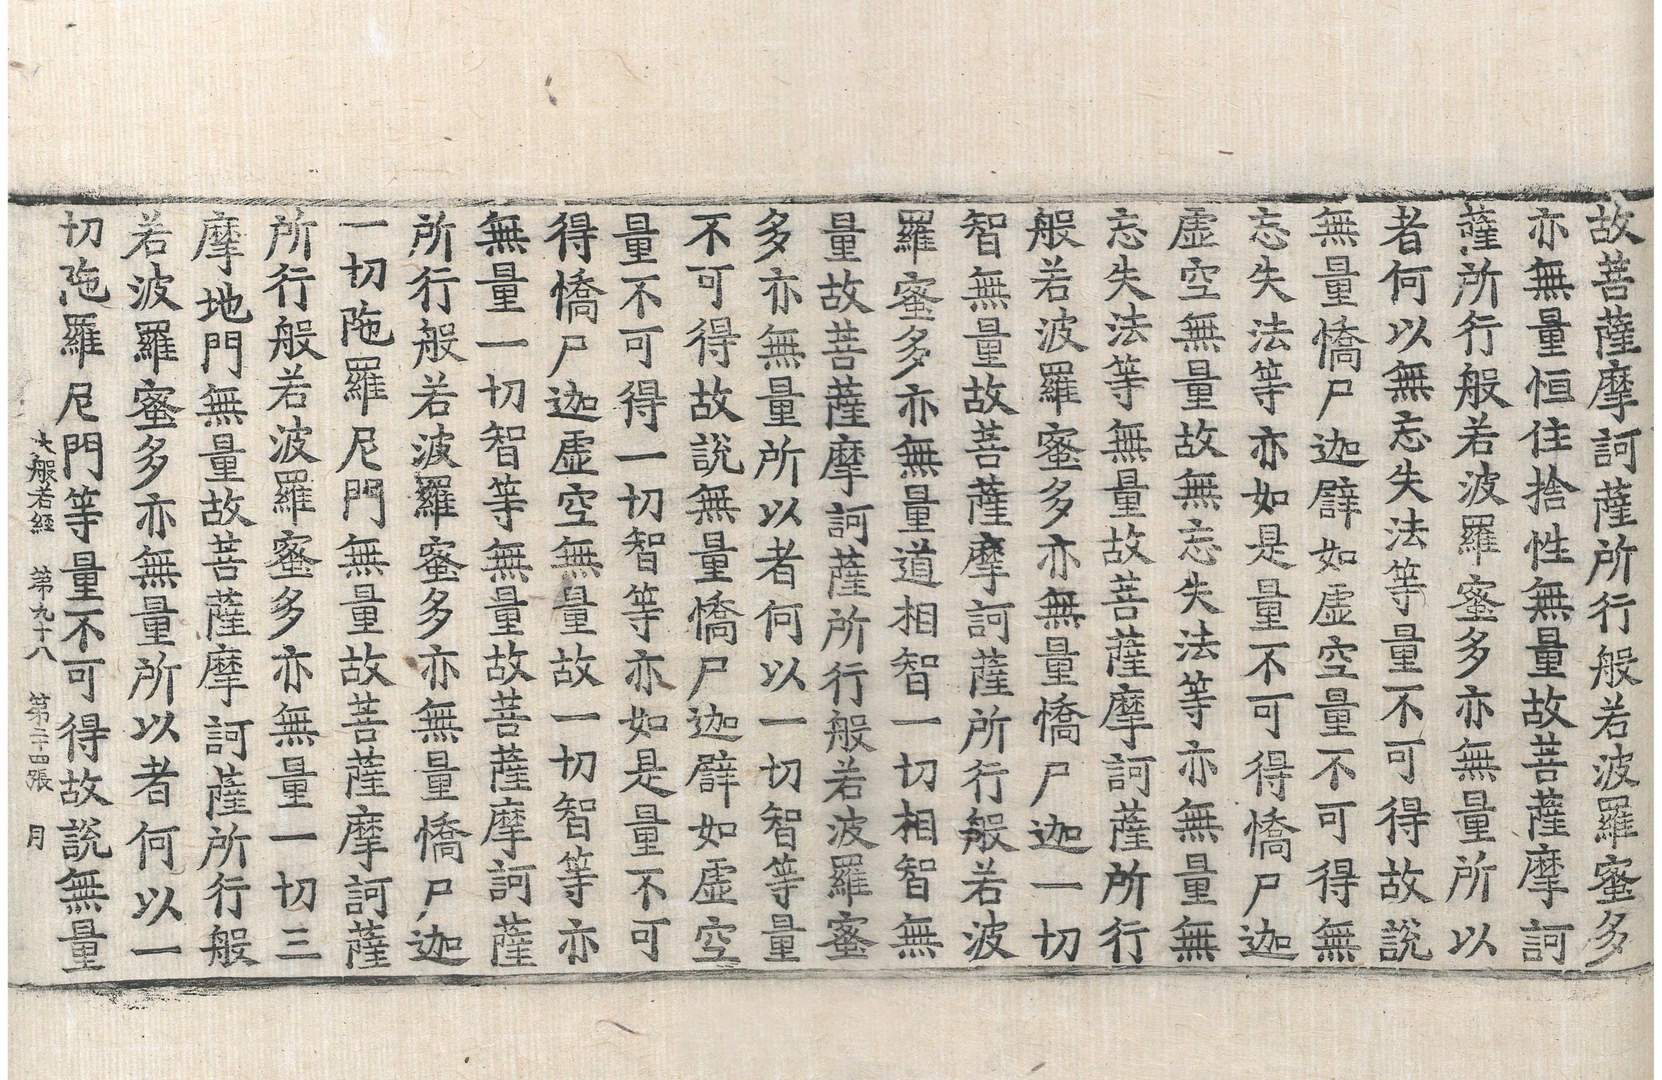 故菩薩摩訶薩所行般若波羅蜜多
亦無量恒住捨性無量故菩薩摩訶
薩所行般若波羅蜜多亦無量所以
者何以無忘失法等量不可得故說
無量憍尸迦譬如虛空量不可得無
忘失法等亦如是量不可得憍尸迦
虛空無量故無忘失法等亦無量無
忘失法等無量故菩薩摩訶薩所行
般若波羅蜜多亦無量憍尸迦一切
智無量故菩薩摩訶薩所行般若波
羅蜜多亦無量道相智一切相智無
量故菩薩摩訶薩所行般若波羅蜜
多亦無量所以者何以一切智等量
不可得故說無量憍尸迦譬如虛空
量不可得一切智等亦如是量不可
得憍尸迦虛空無量故一切智等亦
無量一切智等無量故菩薩摩訶薩
所行般若波羅蜜多亦無量憍尸迦
一切陁羅尼門無量故菩薩摩訶薩
所行般若波羅蜜多亦無量一切三
摩地門無量故菩薩摩訶薩所行般
若波羅蜜多亦無量所以者何以一
切陁羅尼門等量不可得故說無量
大般若經 第九十八 第二十四張 月